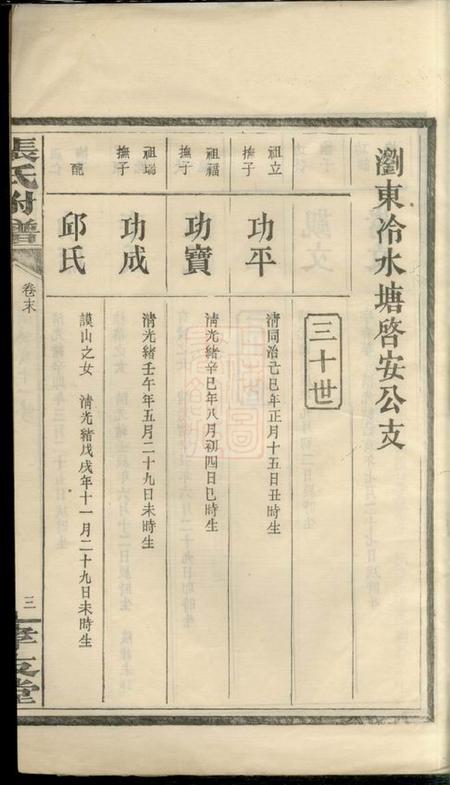 瀏東冷水塘啓安公支
三十世
祖立撫子
功平
清同治己巳年正月十五日丑時生
祖福撫子
功寶
清光緒辛巳年八月初四日巳時生
祖瑞撫子
功成
清光緒壬午年五月二十九日未時生
配
邱氏
謨山之女 清光緒戊戌年十一月二十九日未時生
張氏附譜
卷末
三
孝友堂